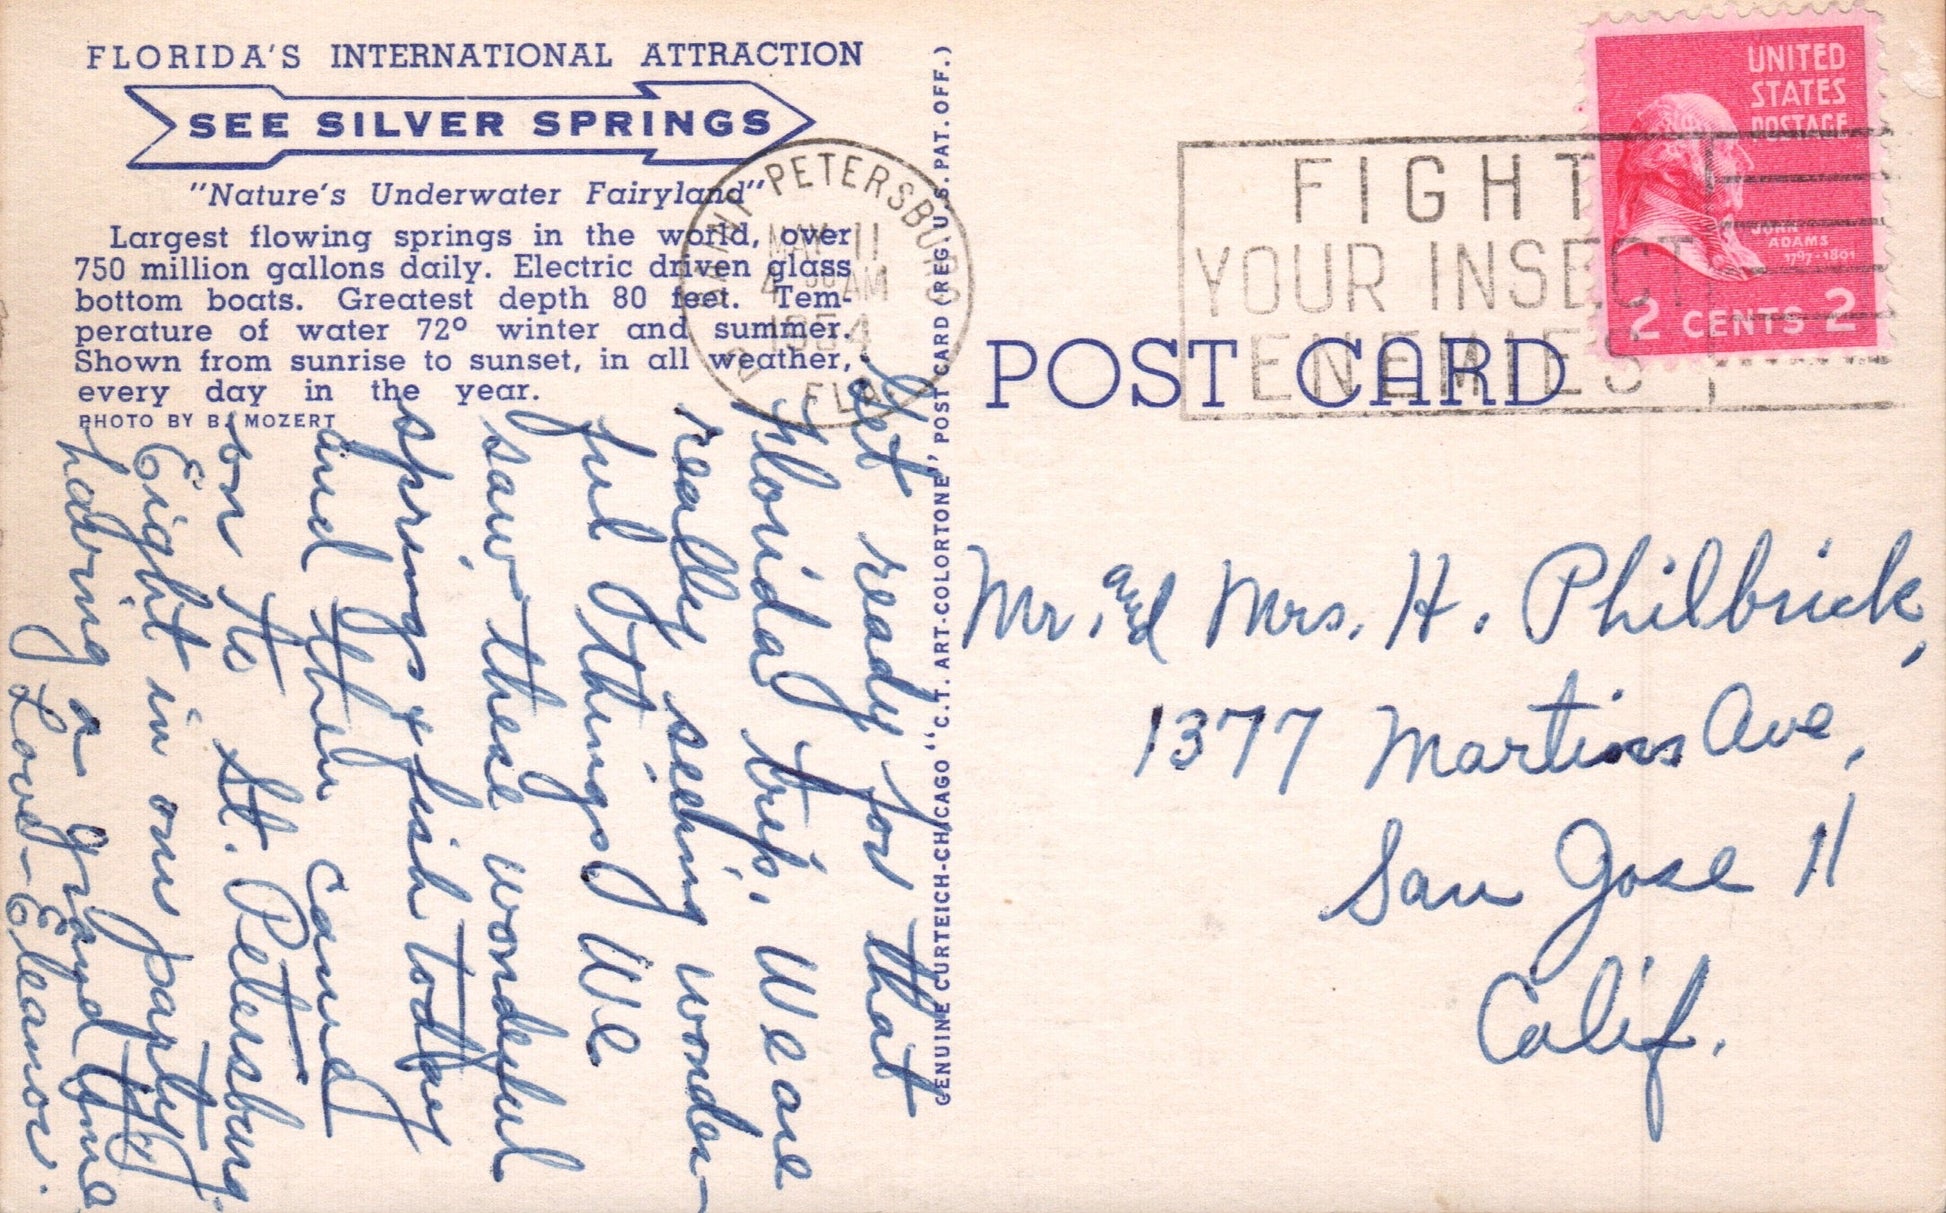 FLORIDA'S INTERNATIONAL ATTRACTION
SEE SILVER SPRINGS
"Nature's Underwater Fairyland"
Largest flowing springs in the world, over
750 million gallons daily. Electric driven glass
bottom boats. Greatest depth 80 feet. Tem-
perature of water 72° winter and summer.
Shown from sunrise to sunset, in all weather,
every day in the year.
PHOTO BY B. MOZERT
Get ready for that
Florida trip. We are
really seeing wonder-
ful things We
saw these wonderful
springs & fish today
and then came
on to St. Petersburg.
Eight in our party
having a grand time
Love - Eleanor.
GENUINE CURTEICH-CHICAGO "C.T. ART-COLORTONE" POST CARD (REG. U.S. PAT. OFF.)
SAINT PETERSBURG
MAY 11
4 30 AM
1954
FLA.
FIGHT
YOUR INSECT
ENEMIES
UNITED
STATES
POSTAGE
JOHN
ADAMS
1797-1801
2 CENTS 2
POST CARD
Mr. and Mrs. H. Philbrick,
1377 Martin Ave,
San Jose 11
Calif.